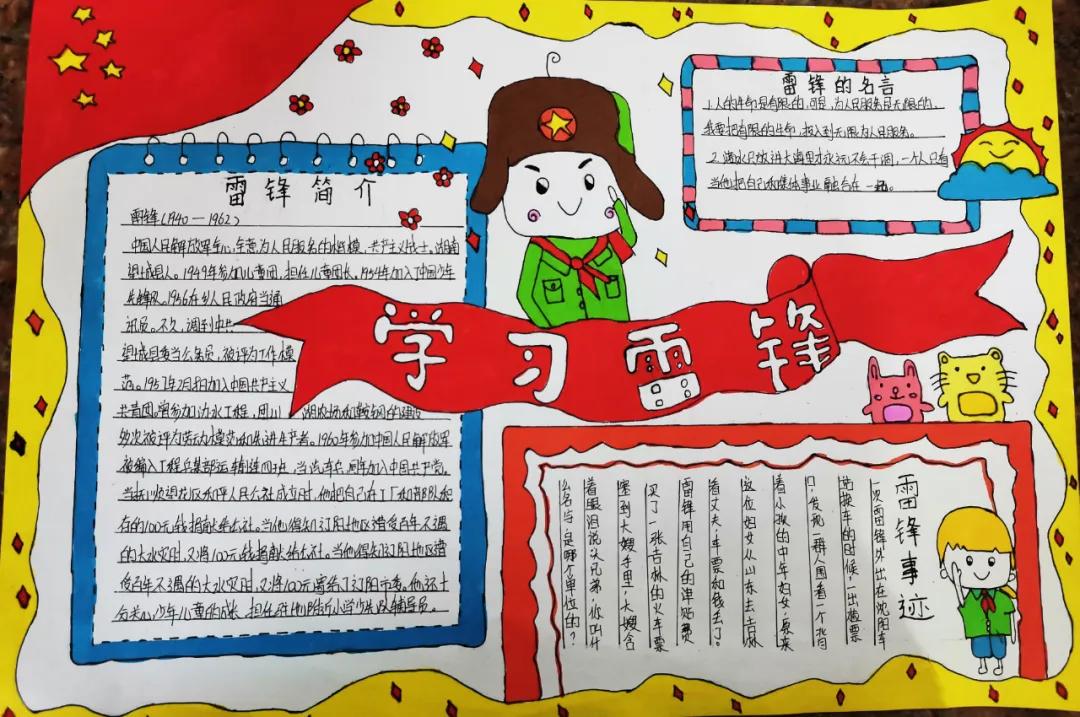 学习雷锋
雷锋简介
雷锋(1940—1962)
中国人民解放军战士,全意为人民服务的楷模,共产主义战士。湖南
望城县人。1949年参加儿童团,担任儿童团长。1954年加入了中国少年
先锋队。1956在乡人民政府当通
讯员。不久,调到中共
望城县委当公务员,被评为工作模
范。1957年2月加入中国共产主义
共青团,曾参加治水工程,团
湖农场和鞍钢的建设
多次被评为劳动模范和先进生产者。1960年参加中国人民解放军
被编入工程兵某部运输连四班,当汽车兵,同年加入中国共产党。
当抚顺望花区和平人民公社成立时,他把自己在工厂和部队积
存的100元钱捐献给公社。当他得知辽阳地区遭受百年不遇
的大水灾时,又将100元钱捐献给公社。当他得知辽阳地区遭
受百年不遇的大水灾时,又将100元寄给了辽阳市委。他还十
分关心少年儿童的成长,担任驻地附近小学少先队辅导员。
雷锋的名言
1.人的生命是有限的,可是,为人民服务是无限的,
我要把有限的生命,投入到无限为人民服务。
2.滴水只放进大海里才永远不会干涸,一个人只有
当他把自己和集体事业融合在一起。
雷锋事迹
一次雷锋外出在沈阳车
站换车的时候,一出检票
口,发现一群人围看一个背
着小孩的中年妇女,原来
这位妇女从山东去吉林
看丈夫,车票和钱丢了。
雷锋用自己的津贴费
买了一张去吉林的火车票
塞到大嫂手里,大嫂含
着眼泪说:大兄弟,你叫什
么名字是哪个单位的?